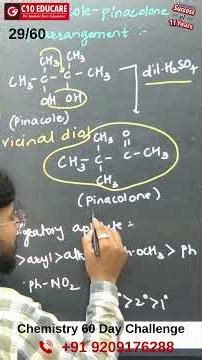 C10 EDUCARE
Success
11 Years
29/60
cole-pinacolone
CH₃ CH₃
CH₃-C - C-CH₃
OH OH
dil·H₂SO₄
(Pinacole)
vicinal diol
CH₃ O
CH₃-C - C-CH₃
CH₃
(Pinacolone)
>aryl>alk
-OCH₃ > ph
ph-NO₂
>2°>1°
Chemistry 60 Day Challenge
+91 9209176288